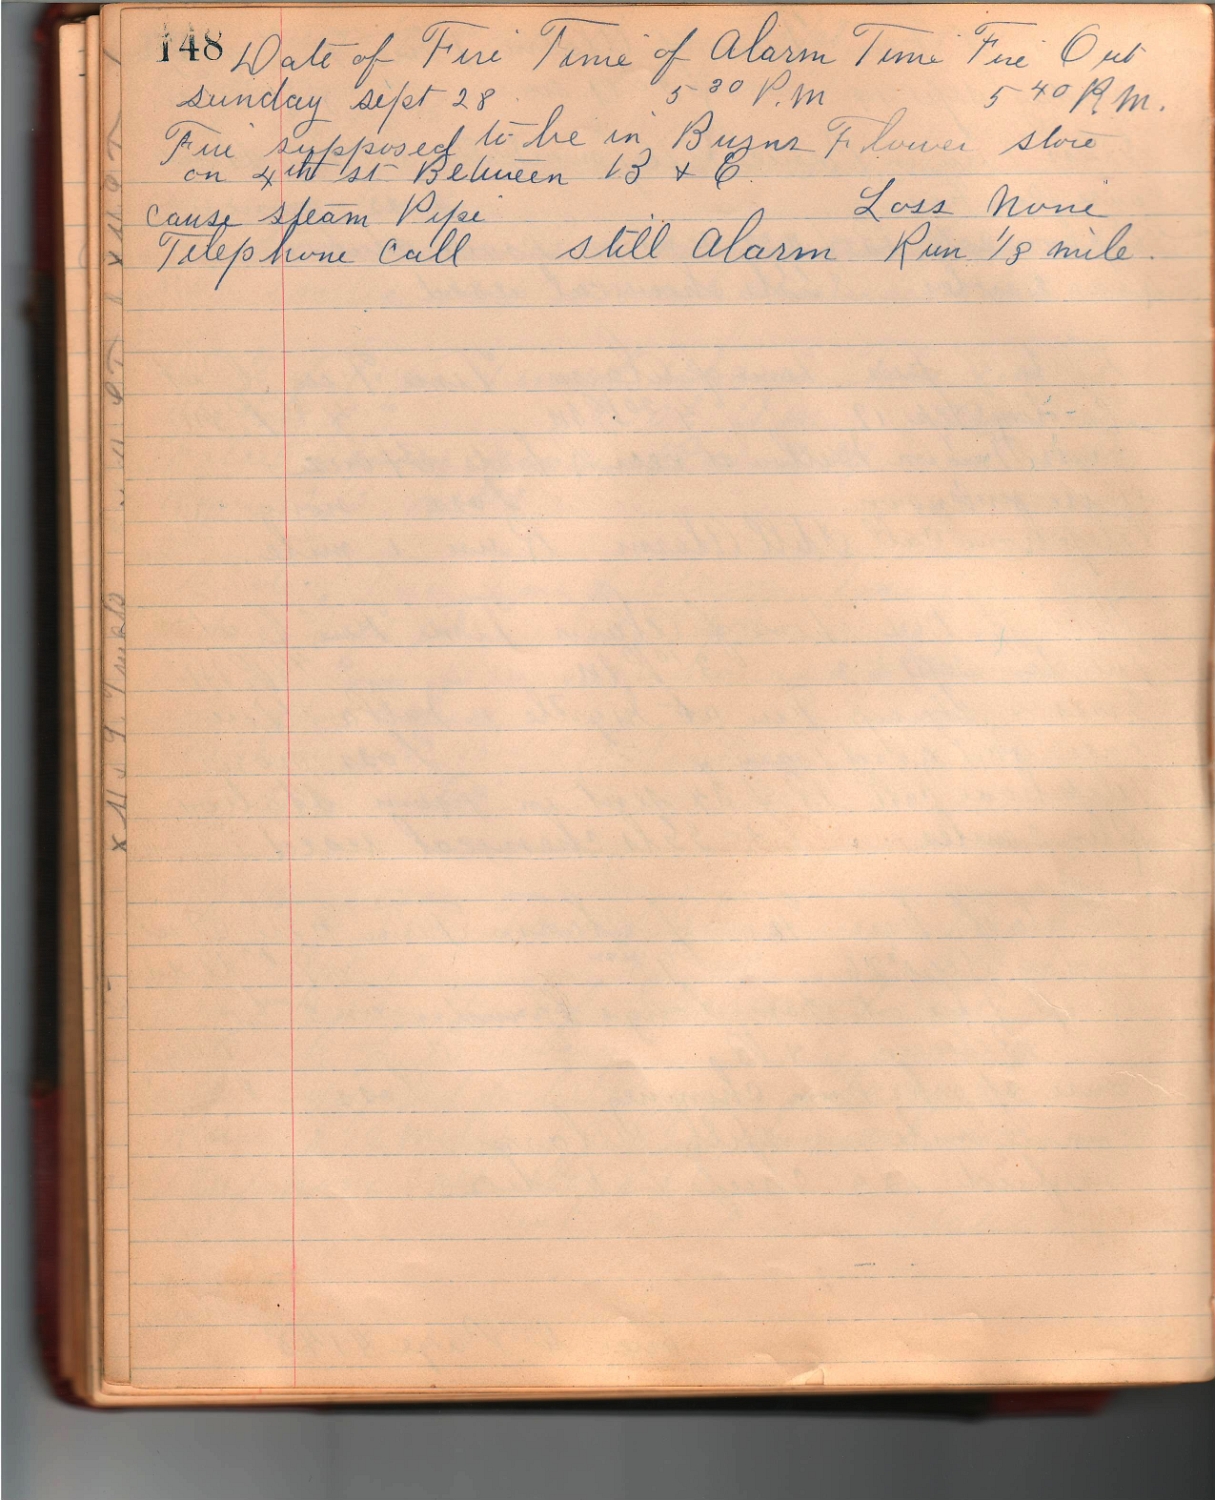 148 Date of Fire Time of Alarm Time Fire Out
Sunday Sept 28 5 30 P.M 5 40 P.M.
Fire supposed to be in Burns Flower store
on 4th st Between B & C
Loss None
cause steam Pipe
Telephone Call still Alarm Run 1/8 mile.